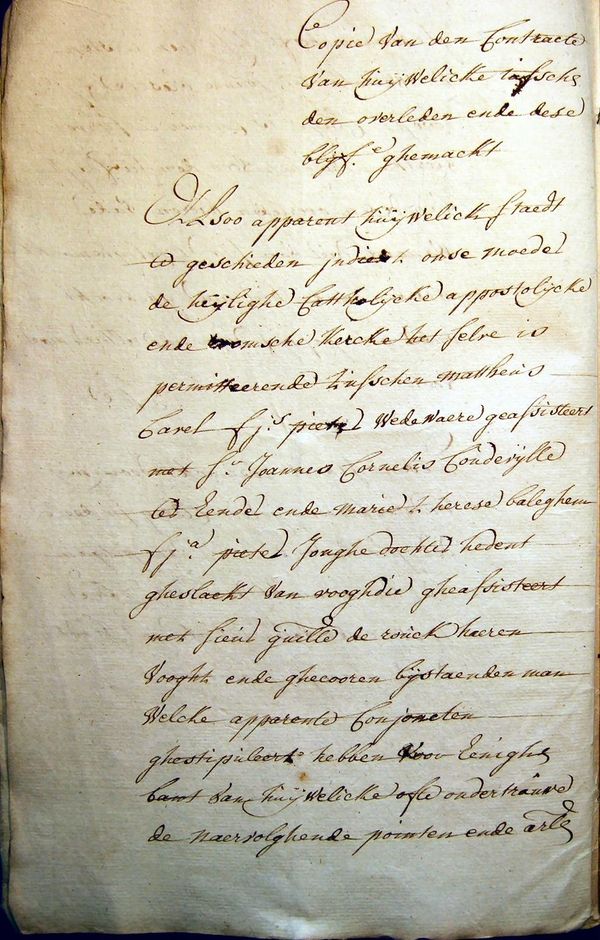 Copie van den Contracte
van huijwelicke tusschen
den overleden ende dese
blijf.e ghemackt
Alsoo apparent huijwelick staedt
te geschieden indient onse moeder
de heijlighe Cattholijcke appostolijcke
ende roomsche kercke het selve is
permitteerende tusschen mattheus
Carel fs pieter wedewaere geassisteert
met sr Joannes Cornelis
ter Eender ende marie therese baleghem
fja pieter Jonghe dochter hedent
gheslackt van vooghdie gheassisteert
met sieur guille de ronck haeren
vooght ende ghecooren bijstaenden man
welcke apparente Conjoncten
ghestipuleert hebben voor Eenighe
bant van huijwelicke ofte ondertrauwe
de naervolghende pointen ende artlen